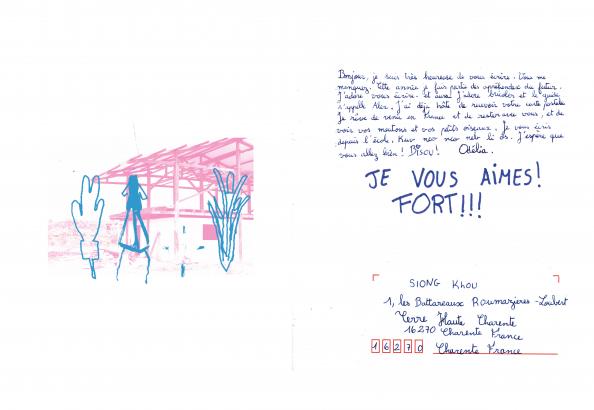 Bonjour, je suis très heureuse de vous écrire. Vous me
manquez. Cette année je fais partie des apprentis du futur.
J'adore vous écrire. et aussi j'adore bricoler et le guide
s'appelle Alex. J'ai déjà hâte de recevoir votre carte postale
Je rêve de venir en France et de rester avec vous, et de
voir vos moutons et vos petits oiseaux. Je vous écris
depuis l'école.
J'espère que
vous allez bien! Bisou! Odélia.
JE VOUS AiMES!
FORT!!!
SIONG Khou
1, les Battareaux Roumazieres-Loubert
Terre Haute Charente
16270 Charente France
16270 Charente France